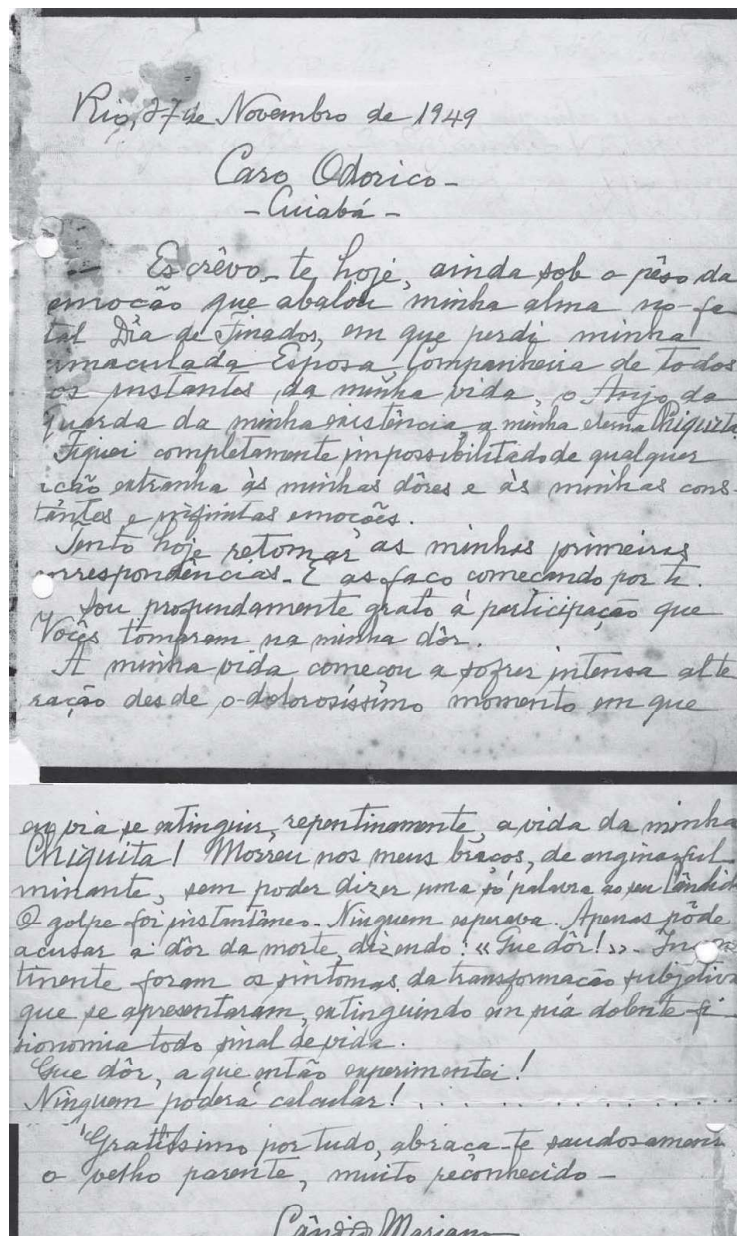 Rio, 27 de Novembro de 1949
Caro Odorico -
- Cuiabá -
Escrêvo-te hoje, ainda sob o pêso da
emoção que abalou minha alma no fa-
tal Dia de Finados, em que perdi minha
imaculada Esposa, Companheira de todos
os instantes da minha vida, o Anjo da
guarda da minha existência a minha eterna Chiquita.
Fiquei completamente impossibilitado de qualquer
ação extranha às minhas dôres e às minhas cons-
tantes e infinitas emoções.
Tento hoje retomar as minhas primeiras
correspondências. E as faço começando por ti.
Sou profundamente grato à participação que
Vocês tomaram na minha dôr.
A minha vida começou a sofrer intensa alte
ração desde o dolorosíssimo momento em que
eu via se extinguir, repentinamente, a vida da minha
Chiquita! Morreu nos meus braços, de angina ful
minante, sem poder dizer uma só palavra ao seu Cândid
O golpe foi instantâneo. Ninguem esperava. Apenas pôde
acusar a dôr da morte, dizendo: «Que dôr!». Incon
tinente foram os sintomas da transformação subjetiva
que se apresentaram, extinguindo em sua dolente fi-
sionomia todo sinal de vida.
Que dôr, a que então experimentei!
Ninguem poderá calcular! . . . . . . . . . . . . . .
Gratíssimo por tudo, abraça-te saudosamen
o velho parente, muito reconhecido -
Cândido Mariano